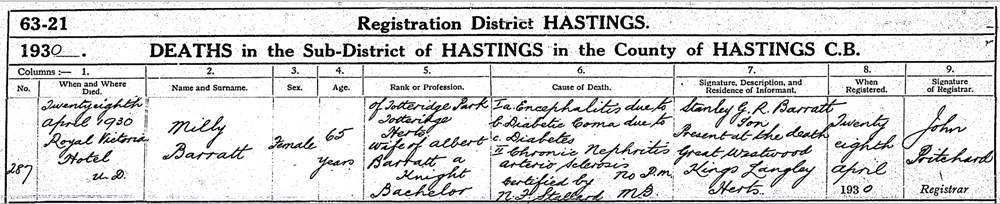 63-21
Registration District HASTINGS.
1930. DEATHS in the Sub-District of HASTINGS in the County of HASTINGS C.B.
Columns :— 1. 2. 3. 4. 5. 6. 7. 8. 9.
No. When and Where Died. Name and Surname. Sex. Age. Rank or Profession. Cause of Death. Signature, Description, and Residence of Informant. When Registered. Signature of Registrar.
287
Twenty eighth
April 1930
Royal Victoria
Hotel
U.D.
Milly
Barratt
Female
65
years
of Totteridge Park
Totteridge
Herts
Wife of Albert
Barratt a
Knight
Bachelor
I a Encephalitis due to
b Diabetic Coma due to
c. Diabetes
II Chronic Nephritis
arterio Sclerosis
No P.m.
Certified by
N. F. Stallard M.B.
Stanley G. R. Barratt
Son
Present at the death
Great Westwood
Kings Langley
Herts.
Twenty
eighth
April
1930
John
Pritchard
Registrar